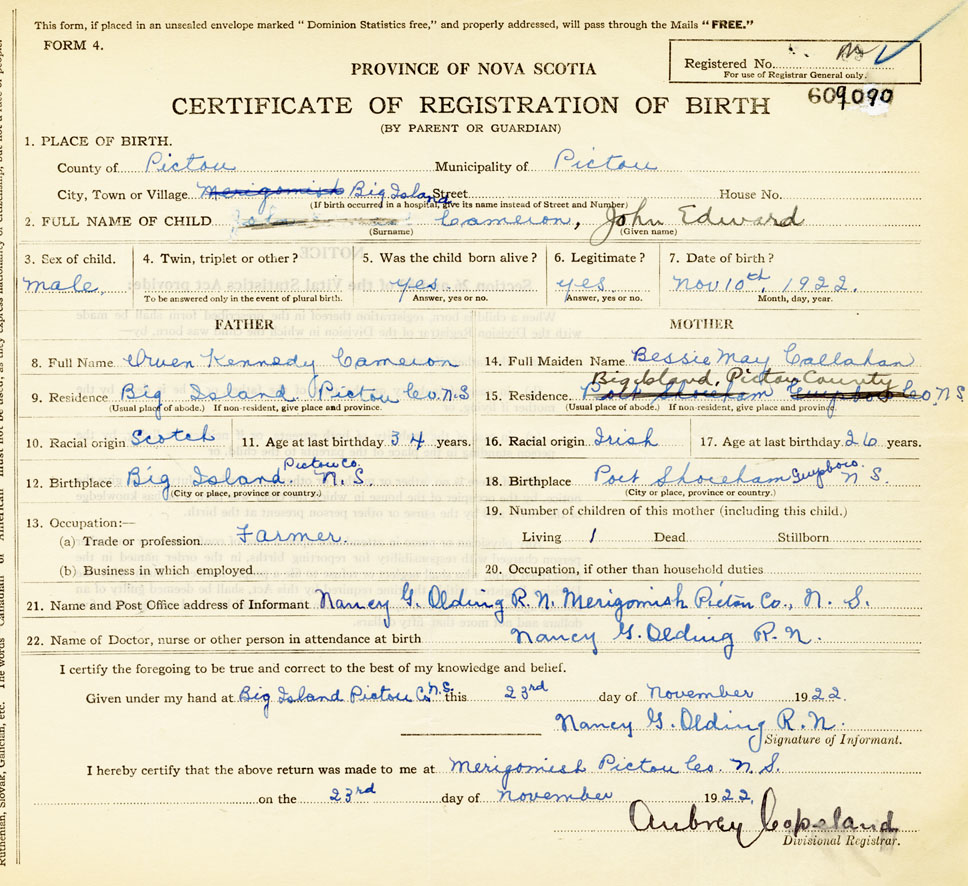 This form, if placed in an unsealed envelope marked "Dominion Statistics free," and properly addressed, will pass through the Mails "FREE."
FORM 4.
Registered No.
For use of Registrar General only.
PROVINCE OF NOVA SCOTIA
CERTIFICATE OF REGISTRATION OF BIRTH
(BY PARENT OR GUARDIAN)
1. PLACE OF BIRTH.
County of Pictou Municipality of Pictou
City, Town or Village Merigomish Big Island Street House No.
(If birth occurred in a hospital, give its name instead of Street and Number)
2. FULL NAME OF CHILD Cameron, John Edward
(Surname) (Given name)
3. Sex of child. 4. Twin, triplet or other? 5. Was the child born alive? 6. Legitimate? 7. Date of birth?
male. yes. yes Nov 10th, 1922.
To be answered only in the event of plural birth. Answer, yes or no. Answer, yes or no. Month, day, year.
FATHER MOTHER
8. Full Name Orven Kennedy Cameron 14. Full Maiden Name Bessie May Callahan
Big Island, Pictou County
9. Residence Big Island Pictou Co. N.S 15. Residence. Port Shoreham Guysboro Co, N.S
(Usual place of abode.) If non-resident, give place and province. (Usual place of abode.) If non-resident, give place and province.
10. Racial origin Scotch 11. Age at last birthday 34 years. 16. Racial origin Irish 17. Age at last birthday 26 years.
12. Birthplace Big Island Pictou Co. N.S. 18. Birthplace Port Shoreham Guysboro. N S.
(City or place, province or country.) (City or place, province or country.)
13. Occupation:— 19. Number of children of this mother (including this child.)
(a) Trade or profession Farmer. Living 1 Dead Stillborn
(b) Business in which employed 20. Occupation, if other than household duties
21. Name and Post Office address of Informant Nancy G. Olding R. N. Merigomish Pictou Co., N. S.
22. Name of Doctor, nurse or other person in attendance at birth Nancy G. Olding R. N.
I certify the foregoing to be true and correct to the best of my knowledge and belief.
Given under my hand at Big Island Pictou Co N.S. this 23rd day of November 1922.
Nancy G. Olding R. N.
Signature of Informant.
I hereby certify that the above return was made to me at Merigomish Pictou Co. N.S.
on the 23rd day of November 1922.
Aubrey Copeland
Divisional Registrar.